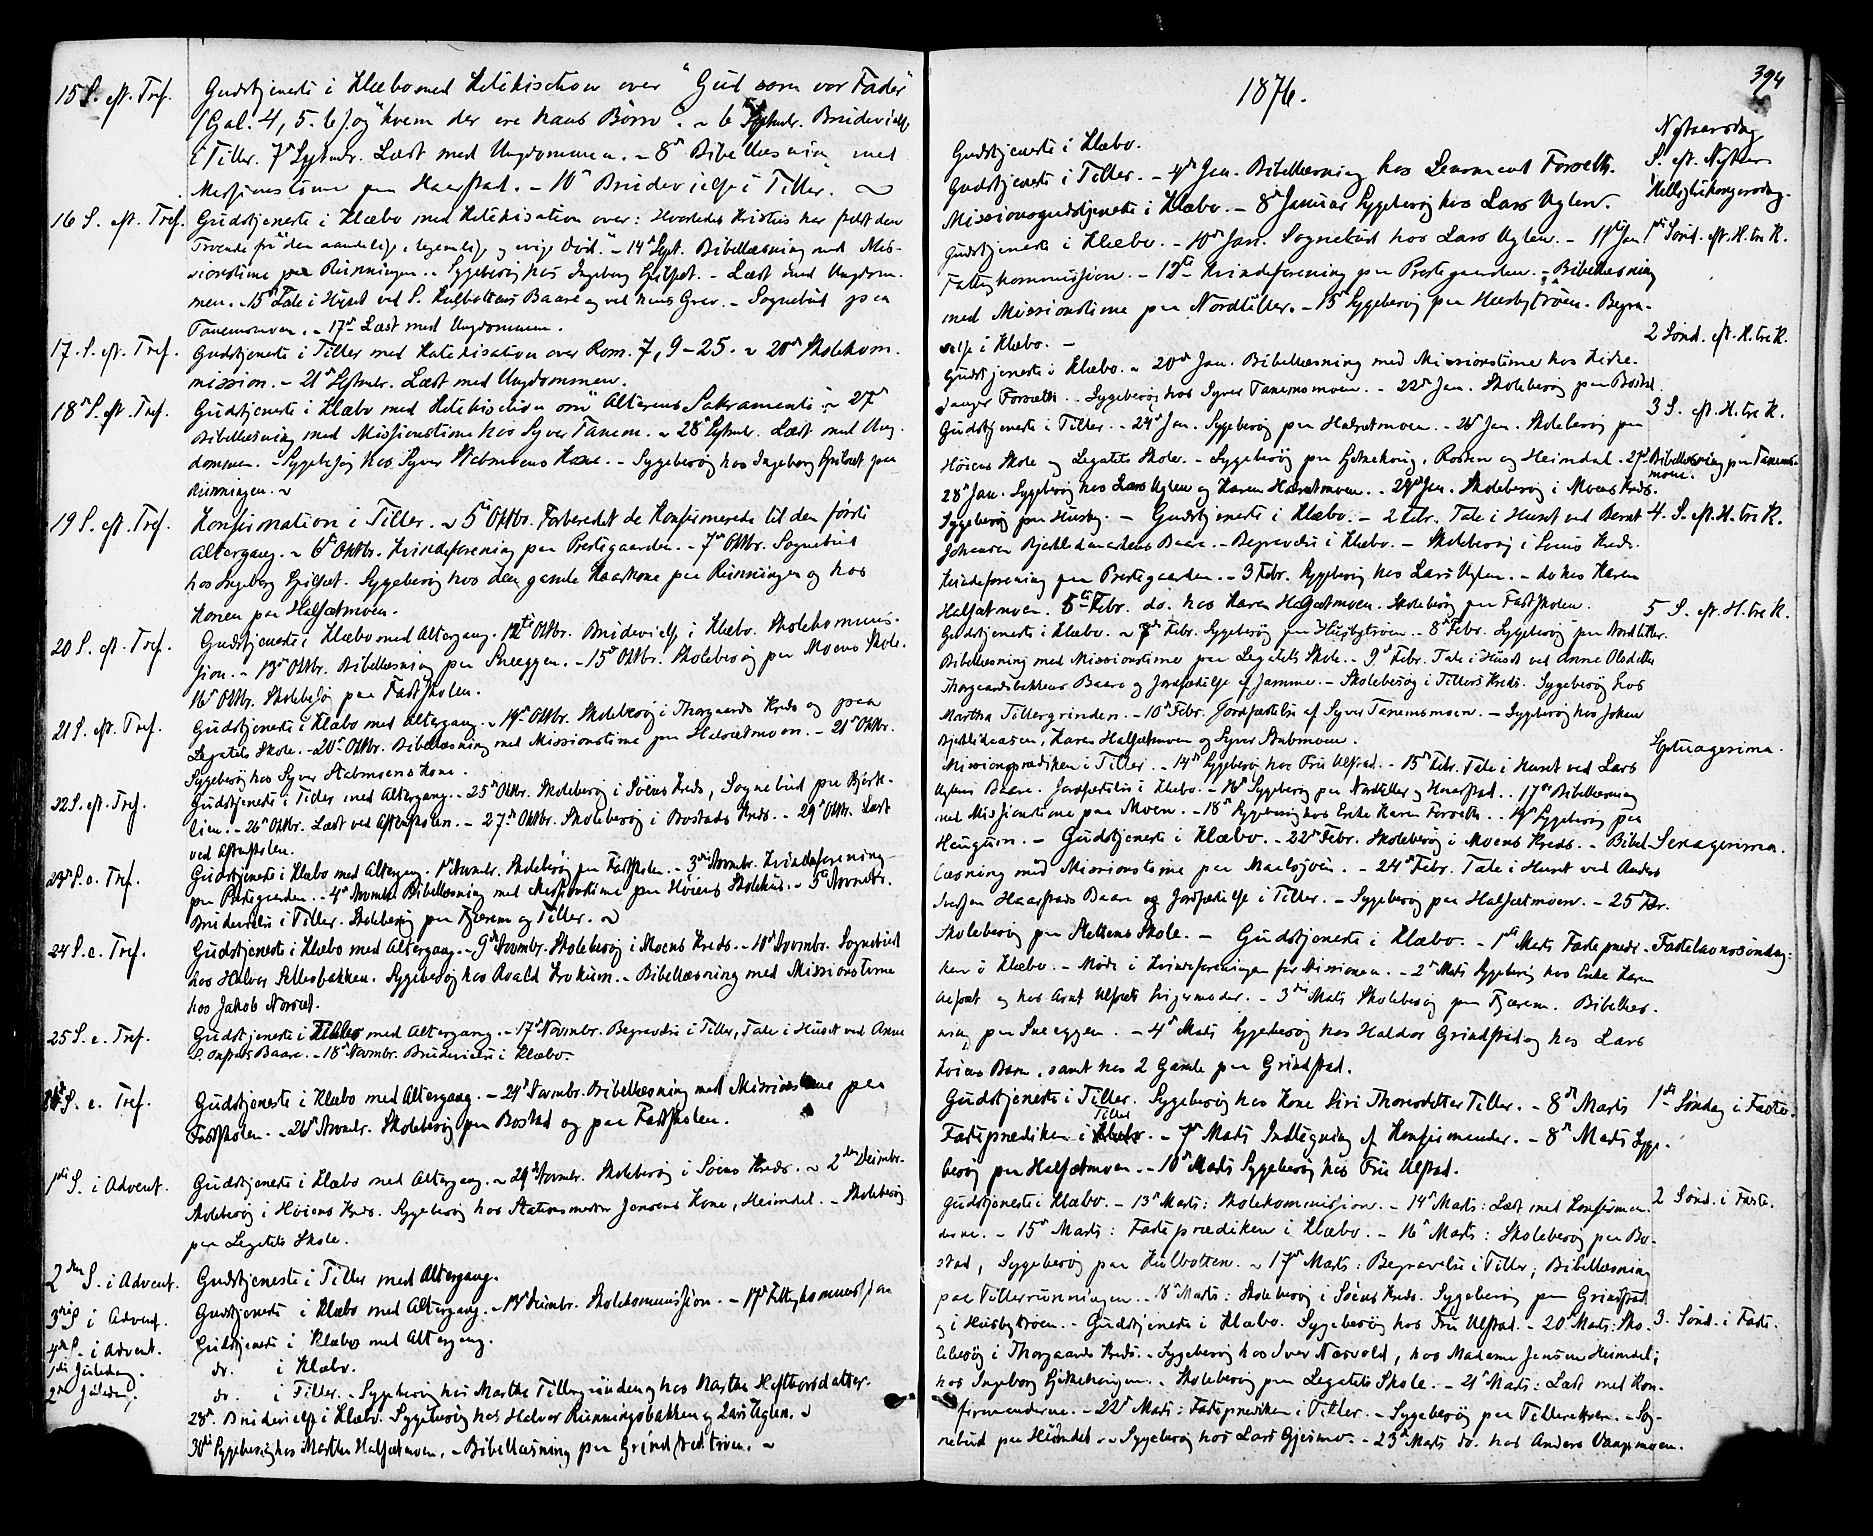 15 S. eft. Tref. Gudstjeneste i Klæbo med Katekisation over "Gud som vor Fader"
(Gal. 4, 5. 6) og "hvem der ere hans Børn". - 6 Septmbr. Brudevielse
i Tiller. 7de Septmbr. Læst med Ungdommen. - 8de Bibellæsning med
Missionstime paa Haarstad. - 10de Brudevielse i Tiller.
16 S. eft. Tref. Gudstjeneste i Klæbo med Katekisation over: Hvorledes Kristus har frelst den
Troende fra "den aandelige, legemlige og evige Død". - 14de Sept. Bibellæsning med Mis-
sionstime paa Rønningen. - Sygebesøg hos Ingeborg - Læst med Ungdom-
men. - 15de Tale i Huset ved S. Kulbottens Baare og ved hans Grav. - Sognebud paa
Tanemsmoen. - 17de Læst med Ungdommen.
17. S. eft. Tref. Gudstjeneste i Tiller med Katekisation over Rom. 7, 9-25. - 20de Skolekom-
mission. - 21de Septmbr. Læst med Ungdommen.
18de S. eft. Tref. Gudstjeneste i Klæbo med Katekisation om "Alterens Sakramente". - 27de
Bibellæsning med Missionstime hos Syver Tanem. - 28de Septmbr. Læst med Ung-
dommen. - Sygebesøg hos Syver Stabmoens Kone. - Sygebesøg hos Ingeborg paa
Rønningen.
19 S. eft. Tref. Konfirmation i Tiller. - 5te Oktbr. Forberedet de Konfirmerede til den første
Altergang. - 6te Oktbr. Kvindeforening paa Prestegaarden. - 7de Oktbr. Sognebud
hos Ingeborg Sygebesøg hos den gamle Kaarkone paa Rønningen og hos
Konen paa Halsætmoen.
20 S. eft. Tref. Gudstjeneste i Klæbo med Altergang. 12te Oktbr. Brudevielse i Klæbo. Skolekommis-
sion. - 13de Oktbr. Bibellæsning paa Sneeggen. - 15de Oktbr. Skolebesøg paa Moens Skole.
16de Oktbr. Skolebesøg paa Fastskolen.
21 S. eft. Tref. Gudstjeneste i Klæbo med Altergang. - 19de Oktbr. Skolebesøg i Thorgaards Kreds og paa
Legatets Skole. - 20de Oktbr. Bibellæsning med Missionstime paa Halsætmoen. - 21de Oktbr.
Sygebesøg hos Syver Stabmoens Kone.
22 S. eft. Tref. Gudstjeneste i Tiller med Altergang. - 25de Oktbr. Skolebesøg i Sørens Kreds, Sognebud paa Bjørk-
lien. - 26de Oktbr. Læst ved Aftenskolen. - 27de Oktbr. Skolebesøg i Bostads Kreds. - 29de Oktbr. Læst
ved Aftenskolen.
23de S. e. Tref. Gudstjeneste i Klæbo med Altergang. 1ste Novmbr. Skolebesøg paa Fastskolen. - 3die Novmbr. Kvindeforening
paa Prestegaarden. - 4de Novmbr. Bibellæsning med Missionstime paa Høiens Skolehus. - 5te Novmbr.
Brudevielse i Tiller. Skolebesøg paa Fjærem og Tiller.
24 S. e. Tref. Gudstjeneste i Klæbo med Altergang. - 9de Novmbr. Skolebesøg i Moens Kreds. - 10de Novmbr. Sognebud
hos Halvor Bibellæsning med Missionstime
hos Jakob Norset.
25 S. e. Tref. Gudstjeneste i Tiller med Altergang. - 17de Novmbr. Begravelse i Tiller, Tale i Huset ved Anne
Baare. - 18de Novmbr. Brudevielse i Klæbo.
S. e. Tref. Gudstjeneste i Klæbo med Altergang. - 24de Novmbr. Bibellæsning med Missionstime paa
Fastskolen. - 26de Novmbr. Skolebesøg paa Bostad og paa Fastskolen.
1ste S. i Advent. Gudstjeneste i Klæbo med Altergang. - 29de Novmbr. Skolebesøg i Sørens Kreds. - 2den Deembr.
Skolebesøg i Høiens Kreds. Sygebesøg hos Stationsmester Jensens Kone, Heimdal. - Skolebesøg
paa Legatets Skole.
2den S. i Advent. Gudstjeneste i Tiller med Altergang.
3die S i Advent. Gudstjeneste i Klæbo med Altergang. - Skolekommission. - 17de Fattigkommission
4de S. i Advent. Gudstjeneste i Klæbo med Altergang.
1ste Juledag. do. i Klæbo.
2den Juledag. do. i Tiller. - Sygebesøg hos Marthe Tillergrinden og hos Marthe
28de Brudevielse i Klæbo. Sygebesøg hos Halvor Rønningsbakken og Lars Uglen.
30te Sygebesøg hos Marthe Halsætmoen. - Bibellæsning paa
394
1876.
Gudstjeneste i Klæbo. Nytaarsdag
Gudstjeneste i Tiller. - 4de Jan. Bibellæsning hos Lensmand Forseth. S. eft. Nytaar
Missionsgudstjeneste i Klæbo. - 8de Januar Sygebesøg hos Lars Uglen. Helligtrekongersdag.
Gudstjeneste i Klæbo. - 10de Jan. Sognebud hos Lars Uglen. - 11te Jan 1ste Sønd. eft. H. tre K.
Fattigkommission. - 12te Kvindeforening paa Prestegaarden. - Bibellæsning
med Missionstime paa Nordtiller. - 15de Sygebesøg paa Husbytrøen. Begra-
velse i Klæbo. -
Gudstjeneste i Klæbo. - 20de Jan. Bibellæsning med Missionstime hos Kirke- 2 Sønd. eft. H. tre K.
sanger Forseth. - Sygebesøg hos Syver Tanemsmoen. - 22de Jan. Skolebesøg paa Bostad.
Gudstjeneste i Tiller. - 24de Jan. Sygebesøg paa Halsætmoen. - 26de Jan. Skolebesøg paa 3 S. eft. H. tre K.
Høiens Skole og Legatets Skole. - Sygebesøg paa Rosten og Heimdal. 27de Bibellæsning paa Tanems-
moen.
28de Jan. Sygebesøg hos Lars Uglen og Karen Halsætmoen. - 29de Jan. Skolebesøg i Moens Kreds.
Sygebesøg paa Husby. - Gudstjeneste i Klæbo. - 2 Febr. Tale i Huset ved Bernt 4. S. eft. H. tre K.
Johansen Baare. - Begravelse i Klæbo. - Skolebesøg i Sørens Kreds.
Kvindeforening paa Prestegaarden. - 3 Febr. Sygebesøg hos Lars Uglen. - do hos Karen
Halsætmoen. 5te Febr. do. hos Karen Halsætmoen. Skolebesøg paa Fastskolen.
Gudstjeneste i Klæbo. - 7de Febr. Sygebesøg paa Husbytrøen. - 8de Febr. Sygebesøg paa Nordtiller. 5 S. eft. H. tre K.
Bibellæsning med Missionstime paa Legatets Skole. - 9de Febr. Tale i Huset ved Anne Olsdatter
Thorgaardsbakkens Baare og Jordfæstelse af samme. - Skolebesøg i Tillers Kreds. Sygebesøg hos
Martha Tillergrinden. - 10de Febr. Jordfæstelse af Syver Tanemsmoen. - Sygebesøg hos Johan
Karen Halsætmoen og Syver Stabmoen.
Missionsprædiken i Tiller. - 14de Sygebesøg hos Fru Ulstad. - 15de Febr. Tale i Huset ved Lars Septuagesima.
Uglens Baare. Jordfæstelse i Klæbo. - 16de Sygebesøg paa Nordtiller og Haarstad. - 17de Bibellæsning
med Missionstime paa Moen. - 18de Sygebesøg hos Enke Karen Forseth. - 19de Sygebesøg paa
Haugum. - Gudstjeneste i Klæbo. - 22de Febr. Skolebesøg i Moens Kreds. - Bibel- Sexagesima.
læsning med Missionstime paa Maelsjøen. - 24de Febr. Tale i Huset ved Anders
Iversen Haarstads Baare og Jordfæstelse i Tiller. - Sygebesøg paa Halsætmoen. - 25de Febr.
Skolebesøg paa Slettens Skole. - Gudstjeneste i Klæbo. - 1ste Marts Fasteprædi- Fastelavnssøndag.
ken i Klæbo. - Møde i Kvindeforeningen for Missionen. - 2de Marts Sygebesøg hos Enke Karen
og hos Arnt Ulsets Svigermoder. - 3die Marts Skolebesøg paa Fjærem. Bibellæs-
ning paa Sneeggen. - 4de Marts Sygebesøg hos Haldor Grindstad og hos Lars
Barn, samt hos 2 Gamle paa Grindstad.
Gudstjeneste i Tiller. Sygebesøg hos Kone Siri Thoresdatter Tiller. - 8de Marts 1ste Søndag i Faste.
Fasteprædiken i Klæbo Tiller. - 7de Marts Indtegning af Konfirmander. - 8de Marts Syge-
besøg paa Halsætmoen. - 10de Marts Sygebesøg hos Fru Ulstad.
Gudstjeneste i Klæbo. - 13de Marts: Skolekommission. - 14de Marts: Læst med Konfirman- 2 Sønd. i Faste.
derne. - 15de Marts: Fasteprædiken i Klæbo. - 16de Marts: Skolebesøg paa Bo-
stad, Sygebesøg paa Kulbotten. - 17de Marts: Begravelse i Tiller, Bibellæsning
paa Tillerrønningen. - 18de Marts: Skolebesøg i Sørens Kreds. Sygebesøg paa Grindstad
og i Husbytrøen. - Gudstjeneste i Klæbo. Sygebesøg hos Fru Ulstad. - 20 Marts: Sko- 3. Sønd. i Faste.
lebesøg i Thorgaards Kreds. - Sygebesøg hos Iver Næsvold, hos Madame Jensen Heimdal;
hos Ingeborg - Skolebesøg paa Legatets Skole. - 21de Marts: Læst med Kon-
firmanderne. - 22de Marts: Fasteprædiken i Tiller. - Sygebesøg paa - Sog-
nebud paa Heimdal. - Sygebesøg hos Lars Gjesmo. - 23de Marts do. hos Anders